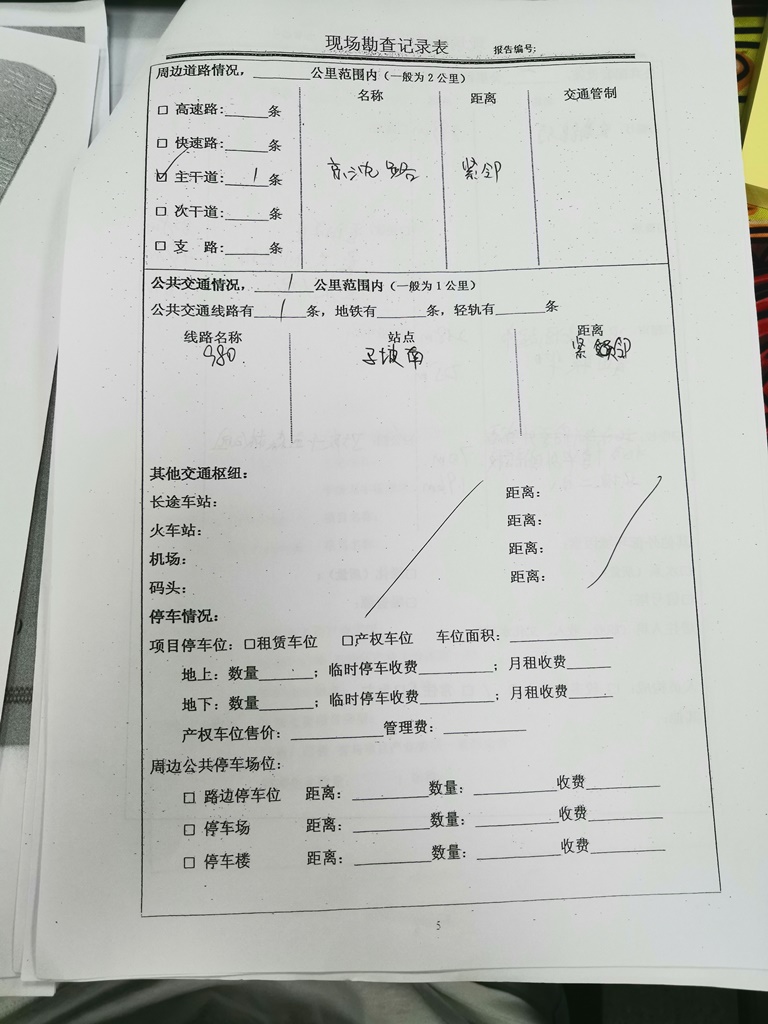 现场勘查记录表 报告编号:
周边道路情况，______公里范围内（一般为2公里）
名称 距离 交通管制
□ 高速路:_____条
□ 快速路:_____条
☑ 主干道:__1__条 京沈路 紧邻
□ 次干道:_____条
□ 支 路:_____条
公共交通情况，___1___公里范围内（一般为1公里）
公共交通线路有__1__条，地铁有_____条，轻轨有_____条
线路名称 站点 距离
980 子坡南 紧邻
其他交通枢纽：
长途车站： 距离：
火车站： 距离：
机场： 距离：
码头： 距离：
停车情况：
项目停车位：□租赁车位 □产权车位 车位面积：__________
地上：数量______；临时停车收费________；月租收费_____
地下：数量______；临时停车收费________；月租收费_____
产权车位售价：__________管理费：_________
周边公共停车场位：
□ 路边停车位 距离：________数量：_________收费_______
□ 停车场 距离：________数量：_________收费_______
□ 停车楼 距离：________数量：_________收费_______
5